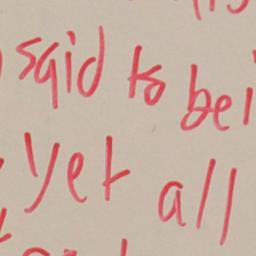 said to bei
yet all